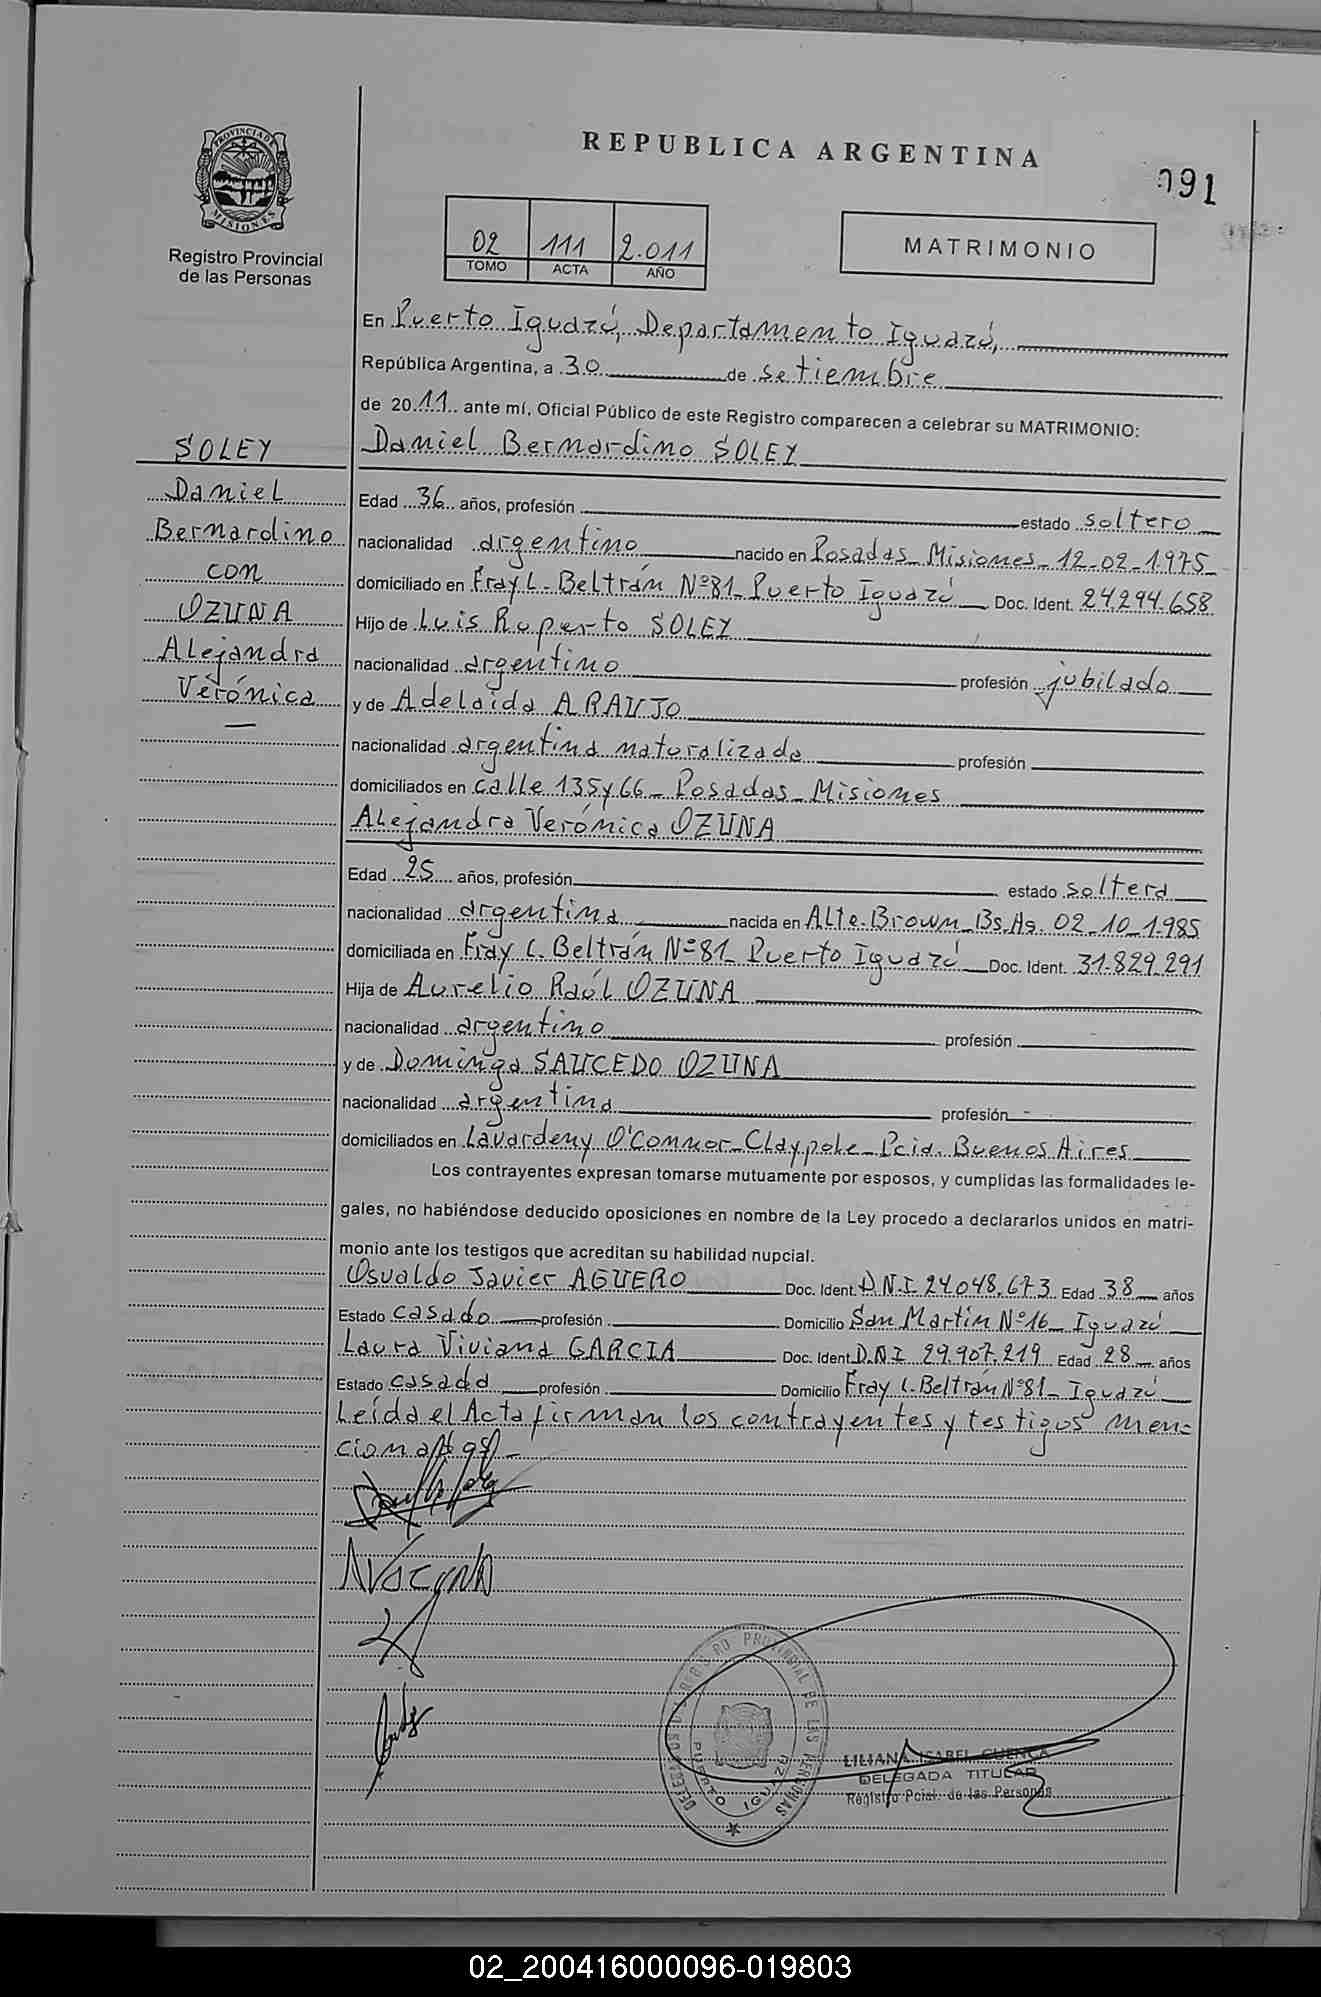 REPUBLICA ARGENTINA
091
PROVINCIA DE
MISIONES
Registro Provincial
de las Personas
02 111 2.011
TOMO ACTA AÑO
MATRIMONIO
En Puerto Iguazú, Departamento Iguazú,
República Argentina, a 30 de setiembre
de 2011 ante mí, Oficial Público de este Registro comparecen a celebrar su MATRIMONIO:
SOLEY
Daniel
Bernardino
con
OZUNA
Alejandra
Verónica
Daniel Bernardino SOLEY
Edad 36 años, profesión estado soltero
nacionalidad argentino nacido en Posadas - Misiones - 12-02-1.975
domiciliado en Fray L. Beltrán Nº 81 - Puerto Iguazú Doc. Ident. 24.294.658
Hijo de Luis Ruperto SOLEY
nacionalidad argentino profesión jubilado
y de Adelaida ARAUJO
nacionalidad argentina naturalizada profesión
domiciliados en calle 135 y 66 - Posadas - Misiones
Alejandra Verónica OZUNA
Edad 25 años, profesión estado soltera
nacionalidad argentina nacida en Alte. Brown - Bs. As. 02-10-1.985
domiciliada en Fray L. Beltrán Nº 81 - Puerto Iguazú Doc. Ident. 31.829.291
Hija de Aurelio Raúl OZUNA
nacionalidad argentino profesión
y de Dominga SAUCEDO OZUNA
nacionalidad argentina profesión -
domiciliados en Lavardeny O'Connor - Claypole - Pcia. Buenos Aires
Los contrayentes expresan tomarse mutuamente por esposos, y cumplidas las formalidades le-
gales, no habiéndose deducido oposiciones en nombre de la Ley procedo a declararlos unidos en matri-
monio ante los testigos que acreditan su habilidad nupcial.
Osvaldo Javier AGUERO Doc. Ident. D.N.I. 24.048.673 Edad 38 años
Estado casado profesión Domicilio San Martín Nº 16 - Iguazú
Laura Viviana GARCIA Doc. Ident. D.N.I. 29.907.219 Edad 28 años
Estado casada profesión Domicilio Fray L. Beltrán Nº 81 - Iguazú
Leída el Acta firman los contrayentes y testigos men=
cionados -
REGISTRO PROVINCIAL DE LAS PERSONAS
PUERTO IGUAZU
LILIANA ISABEL CUENCA
DELEGADA TITULAR
Registro Pcial. de las Personas
02_200416000096-019803